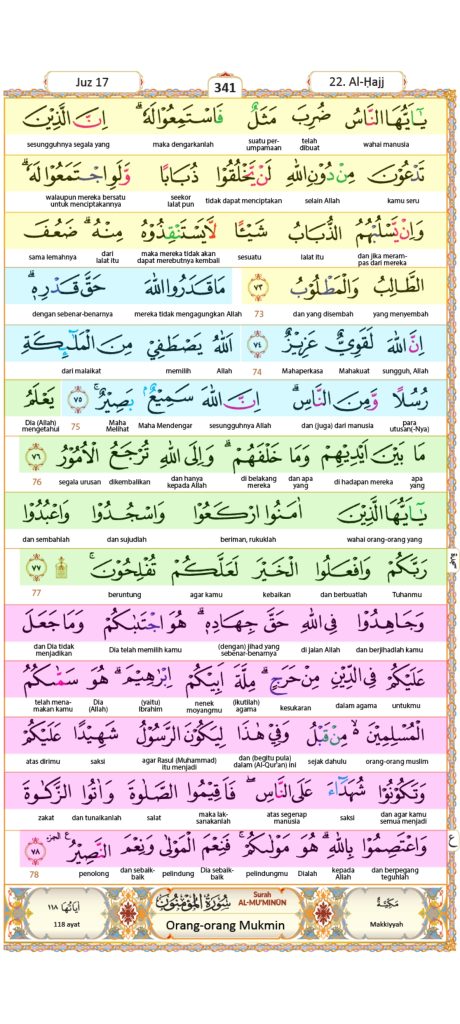 Juz 17 341 22. Al-Ḥajj
يٰٓاَيُّهَا النَّاسُ ضُرِبَ مَثَلٌ فَاسْتَمِعُوْا لَهٗ ۗ اِنَّ الَّذِيْنَ
wahai manusia telah dibuat suatu per-umpamaan maka dengarkanlah sesungguhnya segala yang
تَدْعُوْنَ مِنْ دُوْنِ اللّٰهِ لَنْ يَّخْلُقُوْا ذُبَابًا وَّلَوِ اجْتَمَعُوْا لَهٗ ۗ
kamu seru selain Allah tidak dapat menciptakan seekor lalat pun walaupun mereka bersatu untuk menciptakannya
وَاِنْ يَّسْلُبْهُمُ الذُّبَابُ شَيْـًٔا لَّا يَسْتَنْقِذُوْهُ مِنْهُ ۗ ضَعُفَ
dan jika meram-pas dari mereka lalat itu sesuatu maka mereka tidak akan dapat merebutnya kembali dari lalat itu sama lemahnya
الطَّالِبُ وَالْمَطْلُوْبُ ٧٣ مَا قَدَرُوا اللّٰهَ حَقَّ قَدْرِهٖ ۗ
yang menyembah dan yang disembah 73 mereka tidak mengagungkan Allah dengan sebenar-benarnya
اِنَّ اللّٰهَ لَقَوِيٌّ عَزِيْزٌ ٧٤ اَللّٰهُ يَصْطَفِيْ مِنَ الْمَلٰۤىِٕكَةِ
sungguh, Allah Mahakuat Mahaperkasa 74 Allah memilih dari malaikat
رُسُلًا وَّمِنَ النَّاسِ ۗ اِنَّ اللّٰهَ سَمِيْعٌۢ بَصِيْرٌ ۚ ٧٥ يَعْلَمُ
para utusan(-Nya) dan (juga) dari manusia sesungguhnya Allah Maha Mendengar Maha Melihat 75 Dia (Allah) mengetahui
مَا بَيْنَ اَيْدِيْهِمْ وَمَا خَلْفَهُمْ ۗ وَاِلَى اللّٰهِ تُرْجَعُ الْاُمُوْرُ ٧٦
apa yang di hadapan mereka dan apa yang di belakang mereka dan hanya kepada Allah dikembalikan segala urusan 76
يٰٓاَيُّهَا الَّذِيْنَ اٰمَنُوا ارْكَعُوْا وَاسْجُدُوْا وَاعْبُدُوْا
wahai orang-orang yang beriman, rukuklah dan sujudlah dan sembahlah
رَبَّكُمْ وَافْعَلُوا الْخَيْرَ لَعَلَّكُمْ تُفْلِحُوْنَ ۚ ۩ ٧٧
Tuhanmu dan berbuatlah kebaikan agar kamu beruntung 77
وَجَاهِدُوْا فِى اللّٰهِ حَقَّ جِهَادِهٖ ۗ هُوَ اجْتَبٰىكُمْ وَمَا جَعَلَ
dan berjihadlah kamu di jalan Allah (dengan) jihad yang sebenar-benarnya Dia telah memilih kamu dan Dia tidak menjadikan
عَلَيْكُمْ فِى الدِّيْنِ مِنْ حَرَجٍ ۗ مِلَّةَ اَبِيْكُمْ اِبْرٰهِيْمَ ۗ هُوَ سَمّٰىكُمُ
untukmu dalam agama kesukaran (ikutilah) agama nenek moyangmu (yaitu) Ibrahim Dia (Allah) telah mena-makan kamu
الْمُسْلِمِيْنَ ەۙ مِنْ قَبْلُ وَفِيْ هٰذَا لِيَكُوْنَ الرَّسُوْلُ شَهِيْدًا عَلَيْكُمْ
orang-orang muslim sejak dahulu dan (begitu pula) dalam (Al-Qur'an) ini agar Rasul (Muhammad) itu menjadi saksi atas dirimu
وَتَكُوْنُوْا شُهَدَاۤءَ عَلَى النَّاسِ ۖ فَاَقِيْمُوا الصَّلٰوةَ وَاٰتُوا الزَّكٰوةَ
dan agar kamu semua menjadi saksi atas segenap manusia maka lak-sanakanlah salat dan tunaikanlah zakat
وَاعْتَصِمُوْا بِاللّٰهِ ۗ هُوَ مَوْلٰىكُمْ ۚ فَنِعْمَ الْمَوْلٰى وَنِعْمَ النَّصِيْرُ ࣖ ٧٨
dan berpegang teguhlah kepada Allah Dialah pelindungmu Dia sebaik-baik pelindung dan sebaik-baik penolong 78
مَكِّيَّةٌ سُوْرَةُ الْمُؤْمِنُوْنَ اٰيَاتُهَا ١١٨
Surah AL-MU'MINŪN
Makkiyyah Orang-orang Mukmin 118 ayat